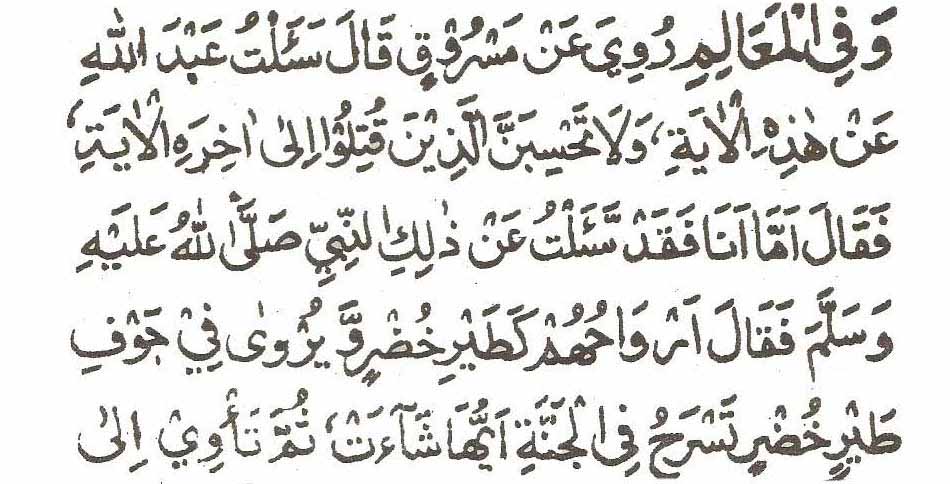 وَفِي الْمَعَالِمِ رُوِيَ عَنْ مَسْرُوْقٍ قَالَ سَئَلْتُ عَبْدَ اللّٰهِ
عَنْ هٰذِهِ الْاٰيَةِ، وَلَا تَحْسِبَنَّ الَّذِيْنَ قُتِلُوْا اِلىٰ اٰخِرِهِ الْاٰيَةِ،
فَقَالَ اَمَّا اَنَا فَقَدْ سَّئَلْتُ عَنْ ذٰلِكِ النِّبِيِّ صَلَّى اللّٰهُ عَلَيْهِ
وَسَلَّمَ فَقَالَ اَرْوَاحُهُمْ كَطَيْرِ خُضْرٍ وَّ يُرْوىٰ فِيْ جَوْفِ
طَيْرٍ خُضْرٍ تَسْرَحُ فِي الْجَنَّةِ اَيُّهَا شَآءَتْ، ثُمَّ تَأْوِيْ اِلىٰ